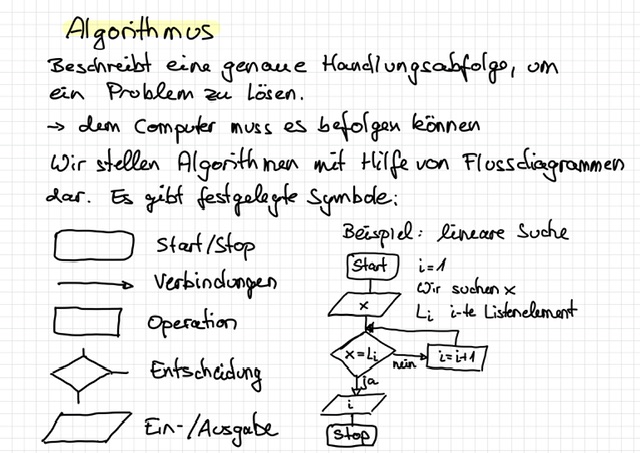 Algorithmus
Beschreibt eine genaue Handlungsabfolge, um
ein Problem zu Lösen.
→ dem Computer muss es befolgen können
Wir stellen Algorithmen mit Hilfe von Flussdiagrammen
dar. Es gibt festgelegte Symbole:
Start/Stop
Verbindungen
Operation
Entscheidung
Ein-/Ausgabe
Beispiel: lineare Suche
Start
i=1
Wir suchen x
Li i-te Listenelement
x
x=Li
nein
i=i+1
ja
i
Stop